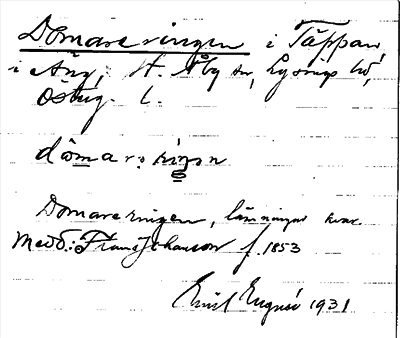 Domareringen i Täppan,
i Äng, St. Åby sn, Lysings hd,
Östrg. l.
dômarriŋen
Domareringen, lämningar kvar.
Medd.: Frans Johansson f. 1853
Emil 1931